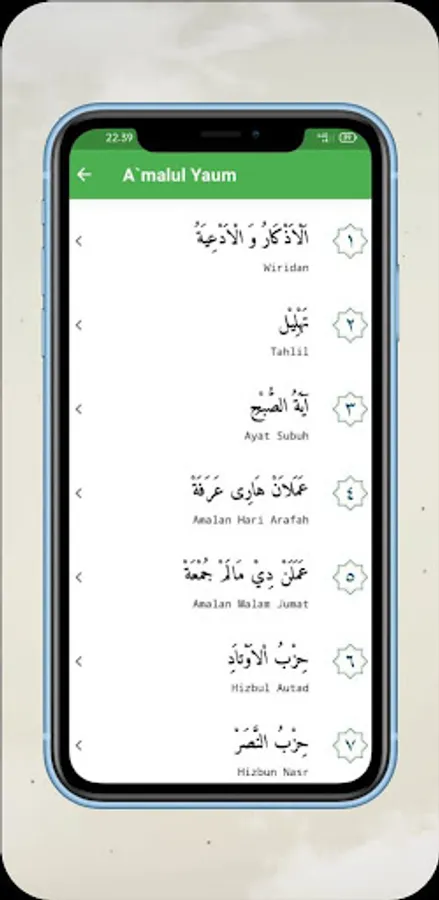 22.39
A`malul Yaum
اَلْاَذْكَارُ وَ الْاَدْعِيَةُ
١
Wiridan
تَهْلِيْلْ
٢
Tahlil
آيَةُ الصُّبْحِ
٣
Ayat Subuh
عَمَلَانْ هَارِى عَرَفَةْ
٤
Amalan Hari Arafah
عَمَلَنْ دِيْ مَالَمْ جُمْعَةْ
٥
Amalan Malam Jumat
حِزْبُ ألاَوْتَادِ
٦
Hizbul Autad
حِزْبُ النَّصَرْ
٧
Hizbun Nasr